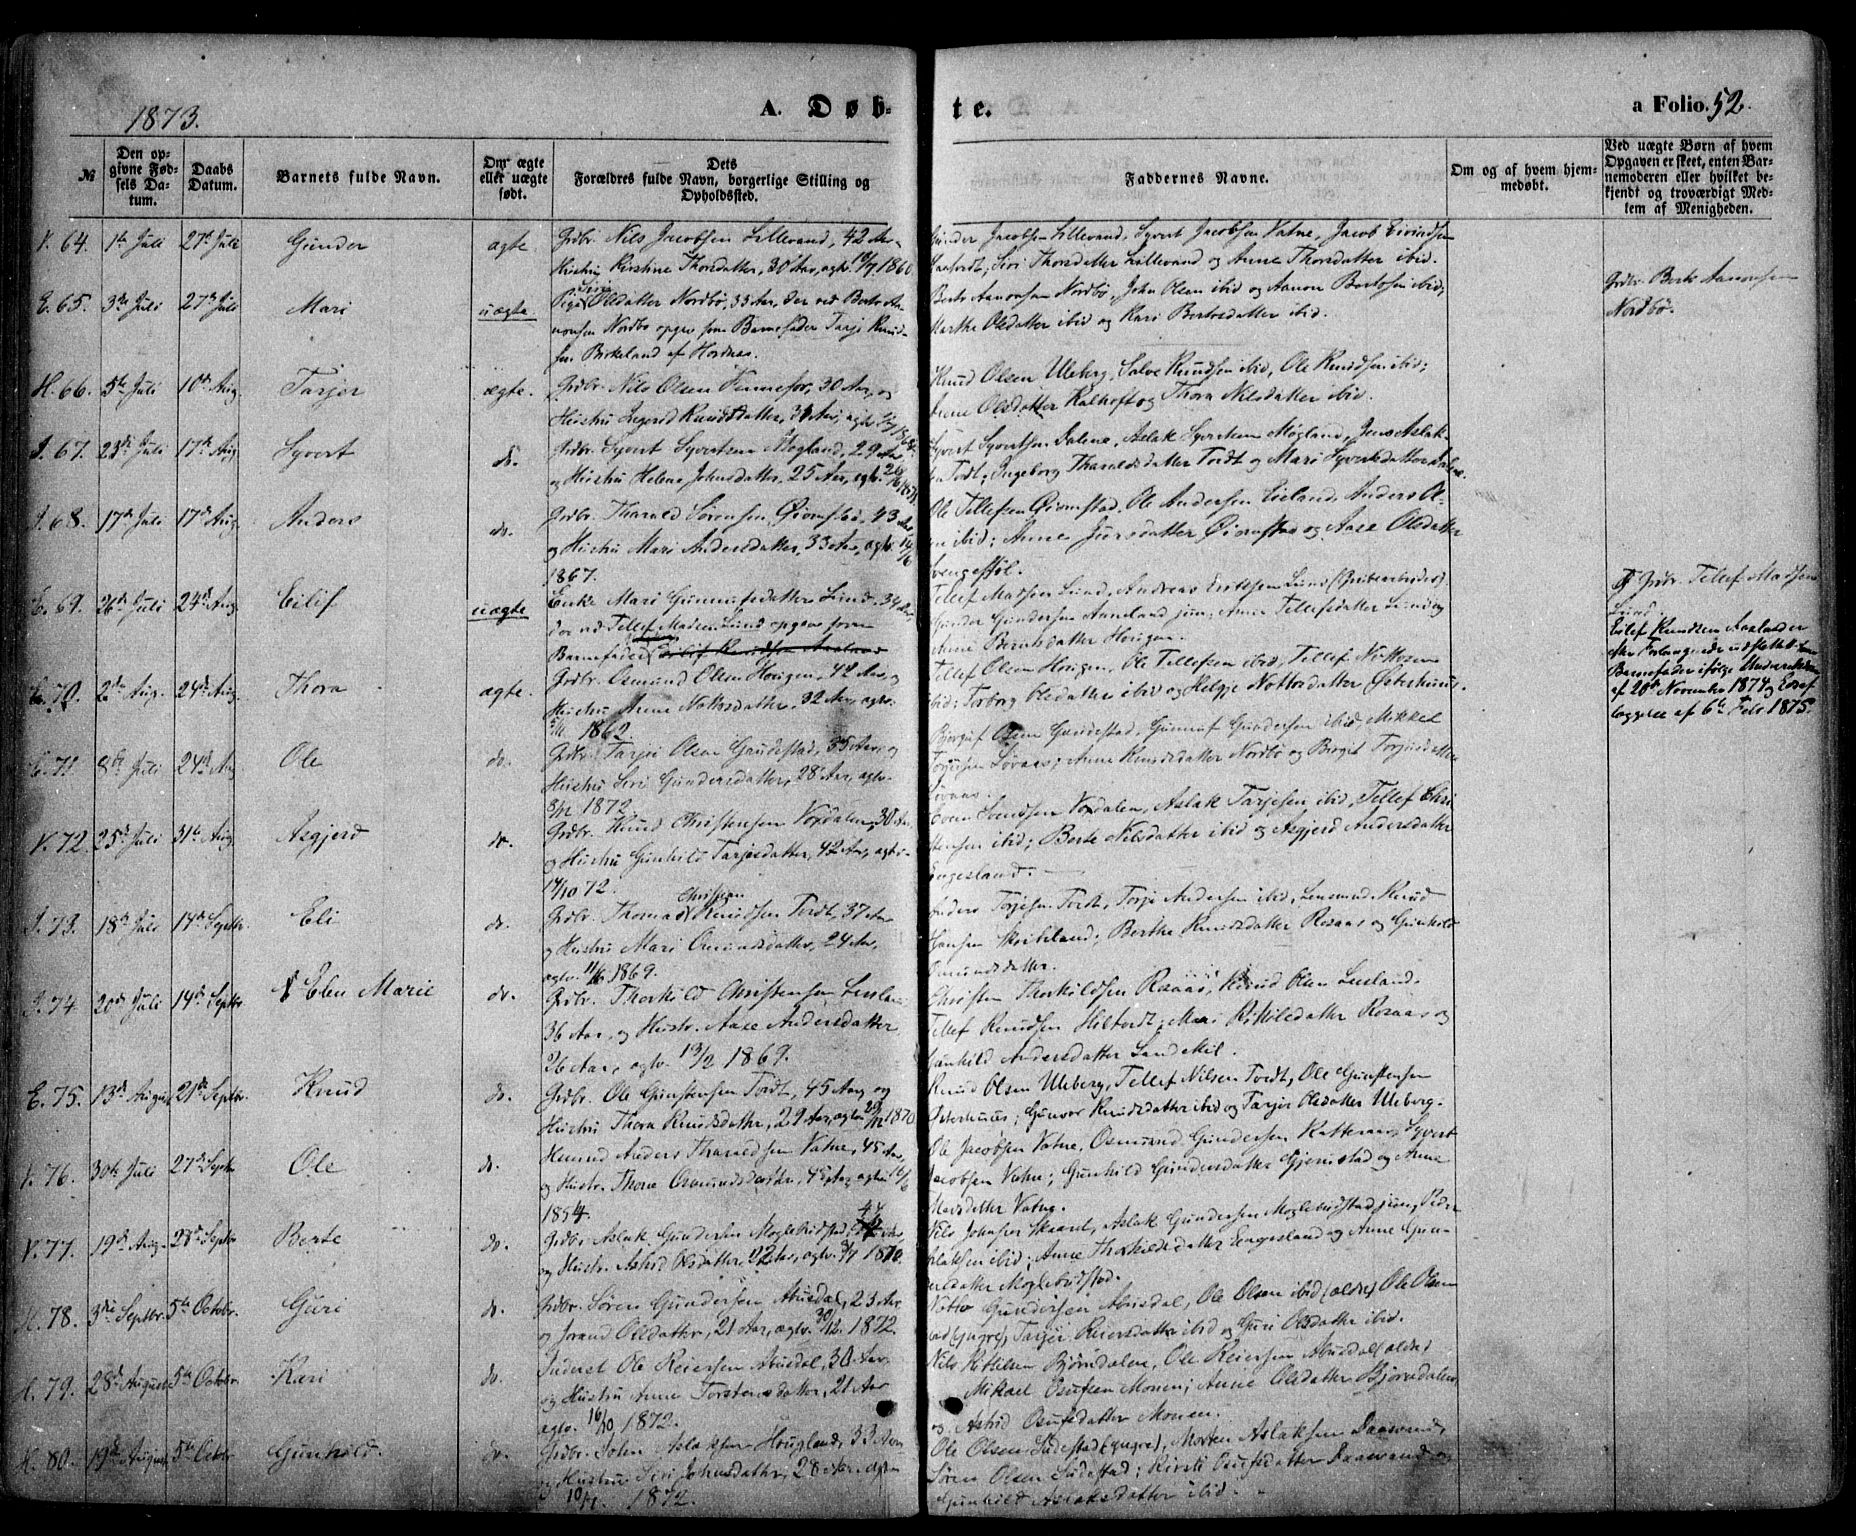 1873.
A. Døb-
te.
a Folio. 52.
№
Den op-
givne Fød-
sels Da-
tum.
Daabs
Datum.
Barnets fulde Navn.
Om ægte
eller uægte
født.
Dets
Forældres fulde Navn, borgerlige Stilling og
Opholdssted.
Faddernes Navne.
Om og af hvem hjem-
medøbt.
Ved uægte Børn af hvem
Opgaven er skeet, enten Bar-
nemoderen eller hvilket be-
kjendt og troværdigt Med-
lem af Menigheden.
V. 64. 1ste Juli 27de Juli Gunder ægte. Grdbr. Nils Jacobsen Lillevand, 42 Aar
Hustru Kirstine Thorsdatter, 30 Aar, agtv. 18/7 1860.
Gunder Jacobsen Lillevand, Syvert Jacobsen Vatne, Jacob Eivindsen
Siri Thorsdatter Lillevand og Anne Thorsdatter ibid.
E. 65. 3die Juli 27de Juli Mari uægte Pige Olsdatter Nordbø, 33 Aar, der ved Berte Aa-
nonsen Nordbø opgiv. som Barnefader Tarje Knud-
sen Birkeland af Hordnæs.
Berte Aanonsen Nordbø, John Olsen ibid og Aanon Bertosen ibid;
Marthe Olsdatter ibid og Kari Bertosdatter ibid.
Grdbr. Berte Aanonsen
Nordbø.
H. 66. 5te Juli 10de Aug. Tarjer ægte. Grdbr. Nils Olsen Fennefos, 30 Aar, og
Hustru Ingerid Knudsdatter, 31 Aar, agtv.
Knud Olsen Uleberg, Salve Knudsen ibid, Ole Knudsen ibid;
Anne Olsdatter Kalhoft og Thora Nilsdatter ibid.
I. 67. 23de Juli 17de Aug. Syvert do. Grdbr. Syvert Syvertsen Møgland, 29 Aar
og Hustru Helene Johnsdatter, 25 Aar, agtv.
Syvert Syvertsen Dalene, Aslak Syvertsen Møgland, Jens Aslak-
sen Tordt; Ingeborg Tharaldsdatter Tordt og Mari Syvertsdatter Dalene.
I. 68. 17de Juli 17de Aug. Anders do. Grdbr. Tharald Sørensen Øiomstad, 43 Aar
og Hustru Mari Andersdatter, 33 Aar, agtv. 14/6
1867.
Ole Tellefsen Øiomstad, Ole Andersen Eieland, Anders O-
sen ibid; Anne Jursdatter Øiomstad og Aase Olsdatter
Svengestøl.
E. 69. 26de Juli 24de Aug. Eilif uægte Enke Mari Gunnufsdatter Lund, 34 Aar,
der ved Tellef Madsen Lund opgives som
Barnefader Eilif Knudsen Aasland
Tellef Madsen Lund, Andreas Eriksen Lund (Gribearbeider)
Gunder Gundersen Aamland jun; Anne Tellefsdatter Lund og
Anne Berntsdatter Horigen.
Grdbr. Tellef Madsen
Lund.
Eilef Knudsen Aasland er
efter Forlangende udslettet som
Barnefader ifølge Underretsdom
af 20de November 1874 og Edsaf-
læggelse af 6te Febr. 1875.
E. 70. 2den Aug. 24de Aug. Thora ægte. Grdbr. Osmund Olsen Horigen, 42 Aar, og
Hustru Anne Nottosdatter, 32 Aar, agtv.
1862.
Tellef Olsen Horigen, Ole Tellefsen ibid, Tellef Nottosen
ibid; Torborg Olsdatter ibid og Helgje Nottosdatter Østerhuus.
E. 71. 8de Juli 24de Aug. Ole do. Grdbr. Tarjei Olsen Gaudestad, 35 Aar, og
Hustru Siri Gundersdatter, 28 Aar, agtv.
8/12 1872.
Bjorguf Olsen Gaudestad, Gunnuf Gundersen ibid, Mikkel
Torjusen Løvaas; Anne Knudsdatter Nordbø og Birgit Torjusdatter
Løvaas.
V. 72. 25de Juli 31te Aug. Asgjerd do. Grdbr. Knud Christensen Voxdalen, 30 Aar,
og Hustru Gunhild Tarjesdatter, 42 Aar, agtv.
14/10 72.
Even Svendsen Voxdalen, Aslak Tarjesen ibid, Tellef Chri-
stensen ibid; Berte Nilsdatter ibid og Asgjerd Andersdatter
Engesland.
I. 73. 18de Juli 14de Septbr. Eli do. Grdbr. Thomas Christian Knudsen Tordt, 37 Aar
og Hustru Mari Osmundsdatter, 24 Aar,
agtv. 11/6 1869.
Anders Torjesen Tordt, Torje Andersen ibid, Lensmand Knud
Hansen Skribeland; Berthe Knudsdatter Rosaas og Gunhild
Osmundsdatter.
I. 74 20de Juli 14de Septbr. Elen Marie do. Grdbr. Thorkild Christensen Lusland
36 Aar, og Hustr. Aase Andersdatter
26 Aar, agtv. 13/2 1869.
Christen Thorkildsen Rosaas, Knud Olsen Lusland,
Tellef Knudsen Hiltordt; Mari Kittilsdatter Rosaas og
Gunhild Andersdatter Landsmil.
E. 75. 13de August 21de Septbr. Knud do. Grdbr. Ole Gunstensen Tordt, 45 Aar og
Hustru Thora Knudsdatter, 29 Aar, agtv. 29/12 1870
Knud Olsen Uleberg, Tellef Nilsen Tordt, Ole Gunstensen
Østerhuus; Gunvor Knudsdatter ibid og Tarjer Olsdatter Uleberg.
V. 76. 30te Juli 27de Septbr Ole do. Huusmd Anders Tharaldsen Vatne, 45 Aar,
og Hustr. Thone Osmundsdatter, 45 Aar, agtv. 16/6
1854.
Ole Jacobsen Vatne, Osmund Gundersen Katteraas, Syvert
Jacobsen Vatne; Gunhild Gundersdatter Gjerustad og Anne
Madsdatter Vatne.
V. 77. 19de Aug. 28de Septbr Berte do. Grdbr. Aslak Gundersen Moglebustad, 44 Aar,
og Hustr. Astrid Olsdatter, 22 Aar, agtv. 3/7 1870.
Nils Johnsen Skaaret, Aslak Gundersen Moglebustad jun, Peder
Aslaksen ibid; Anne Thorkildsdatter Engesland og Anne Gun-
dersdatter Moglebustad.
H. 78. 3die Septbr. 5te Octobr. Guri do. Grdbr. Søren Gundersen Abusdal, 23 Aar
og Jorand Olsdatter, 21 Aar, agtv. 30/12 1872.
Notto Gundersen Abusdal, Ole Olsen ibid (ældre) Ole Olsen
ibid (yngre); Tarjer Reiersdatter ibid og Guri Olsdatter ibid.
H. 79. 28de August 5te Octobr. Kari do. Inderst Ole Reiersen Abusdal, 30 Aar
og Hustru Anne Torstensdatter, 21 Aar
agtv. 16/10 1872.
Nils Kittelsen Bjørndalen, Ole Reiersen Abusdal (ældre)
Mikael Osufsen Monen; Anne Olsdatter Bjørndalen
og Astrid Osufsdatter Monen.
H. 80. 19de August 5te Octobr Gunhild. do. Grdbr. John Aslaksen Hougland, 33 Aar
og Hustru Siri Johnsdatter, 28 Aar, agtv.
10/11 1872.
Ole Olsen Ludestad (yngre), Morten Aslaksen Daasvand,
Søren Olsen Ludestad; Kirsti Osufsdatter Daasvand og
Gunhild Aslaksdatter ibid.